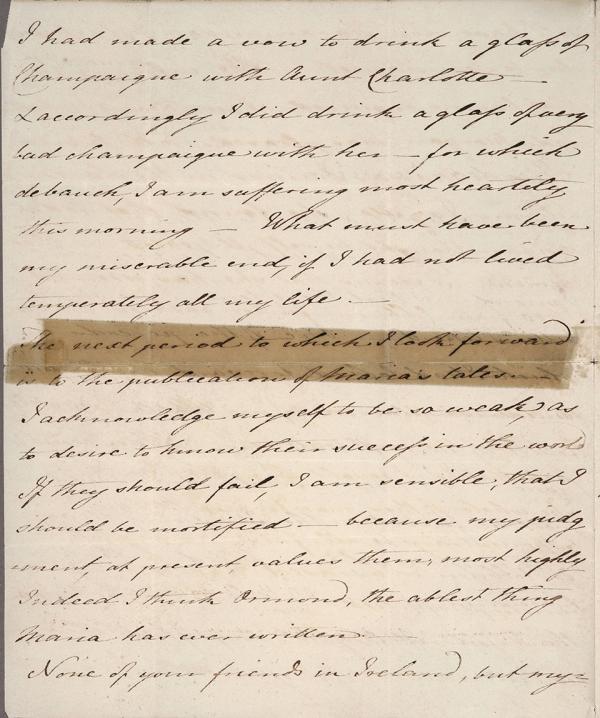 I had made a vow to drink a glass of
Champaigne with Aunt Charlotte —
& accordingly I did drink a glass of very
bad champaigne with her — for which
debauch, I am suffering most heartily
this morning — What must have been
my miserable end, if I had not lived
temperately all my life. —
The next period to which I look forward
is to the publication of Maria's tales —
I acknowledge myself to be so weak, as
to desire to know their success in the worl
If they should fail, I am sensible, that I
should be mortified — because my judg
ment, at present values them, most highly
Indeed I think Ormond, the ablest thing
Maria has ever written —
None of your friends in Ireland, but my=